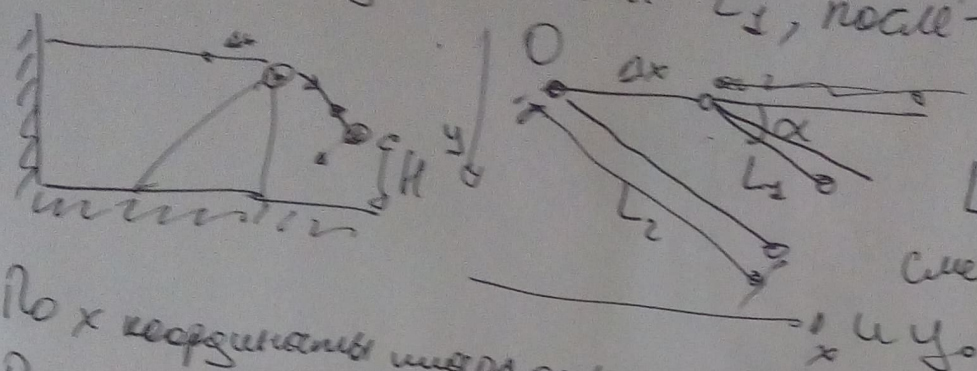 L₁, после-
O
Δx
y
H
α
L₁
L₂
сме
x
и y.
По x координаты